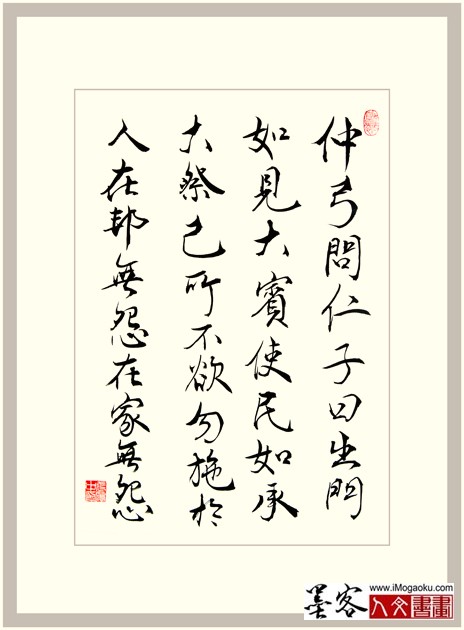 仲弓問仁子曰出門
如見大賓使民如承
大祭己所不欲勿施於
人在邦無怨在家無怨
墨客
www.iMogaoku.com
人文書畫